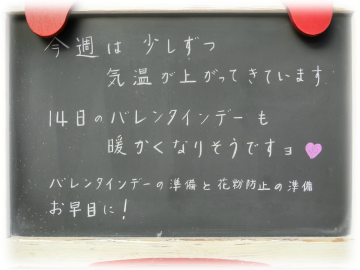 今週は少しずつ
気温が上がってきています
14日のバレンタインデーも
暖かくなりそうですョ
バレンタインデーの準備と花粉防止の準備
お早目に!